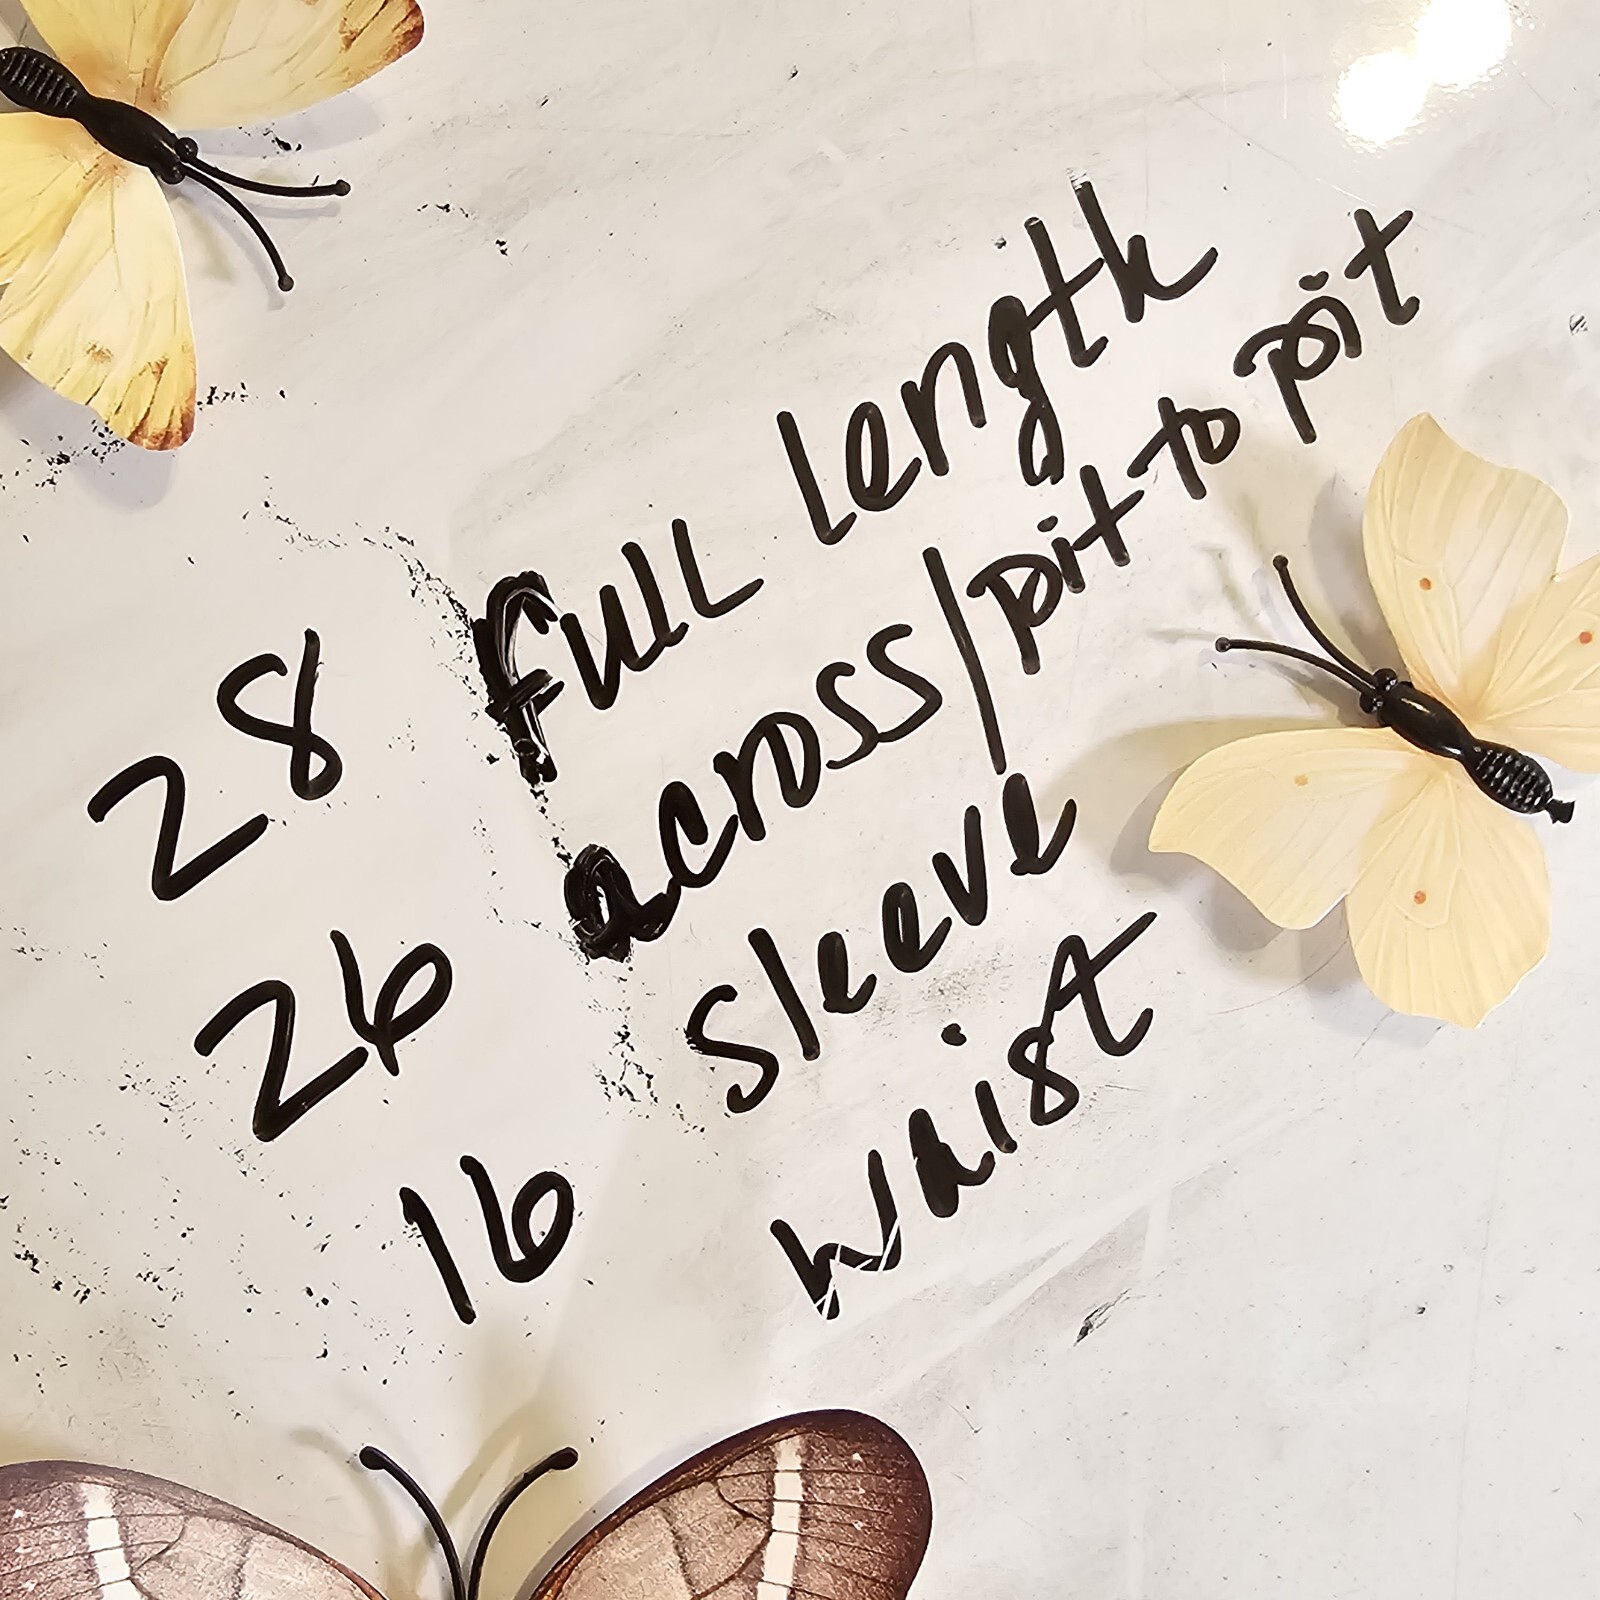 28 full length
26 across/pit to pit
16 sleeve
waist